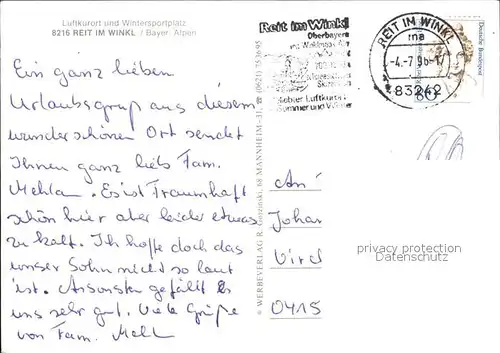 Luftkurort und Wintersportplatz
8216 REIT IM WINKL / Bayer. Alpen
Ein ganz lieben
Urlaubsgruß aus diesem
wunderschönen Ort sendet
Ihnen ganz lieb Fam.
Mehlan. Es ist Traumhaft
schön hier aber leider etwas
zu kalt. Ich hoffe doch das
unser Sohn nicht so laut
ist. Ansonsten gefällt es
uns sehr gut. Viele Grüße
von Fam. Mehl
© WERBEVERLAG R. 68 MANNHEIM 31, ☎ (0621) 753695
Reit im Winkl
Oberbayern
Luftkurort
Sommer und Winter
REIT IM WINKL
ma
-4.-7.96-1
83242
Deutsche Bundespost
80
An
Johan
0415
privacy protection
Datenschutz